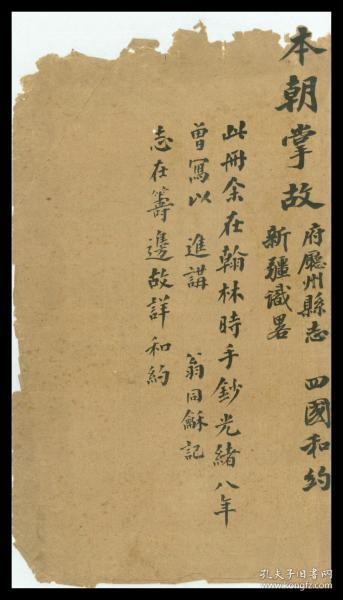 本朝掌故
府廳州縣志 四國和約
新疆識畧
此冊余在翰林時手鈔光緒八年
曾寫以 進講 翁同龢記
志在籌邊故詳和約
孔夫子旧书网
www.kongfz.com